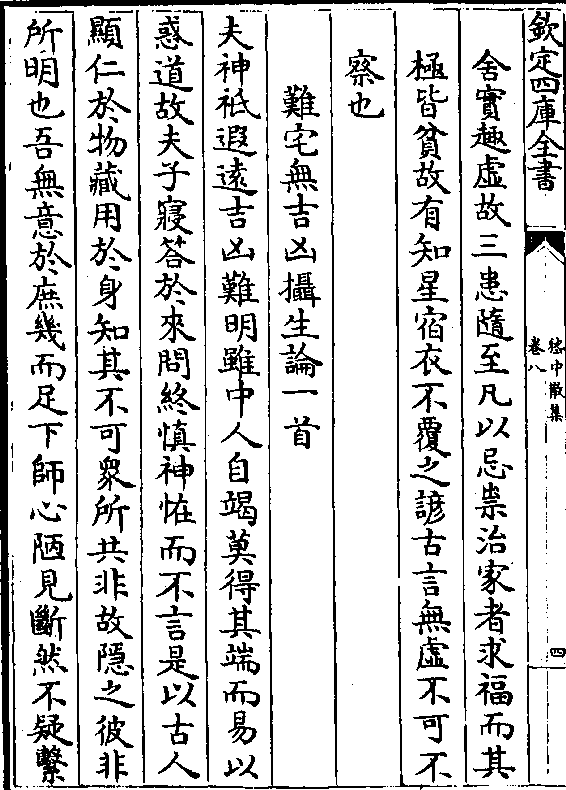 欽定四庫全書
嵇中散集
卷八
四
舍實趣虛故三患隨至凡以忌祟治家者求福而其
極皆貧故有知星宿衣不覆之諺古言無虛不可不
察也
難宅無吉凶攝生論一首
夫神祇遐遠吉凶難明雖中人自竭莫得其端而易以
惑道故夫子寢答於來問終慎神怪而不言是以古人
顯仁於物藏用於身知其不可衆所共非故隱之彼非
所明也吾無意於庶幾而足下師心陋見斷然不疑繫